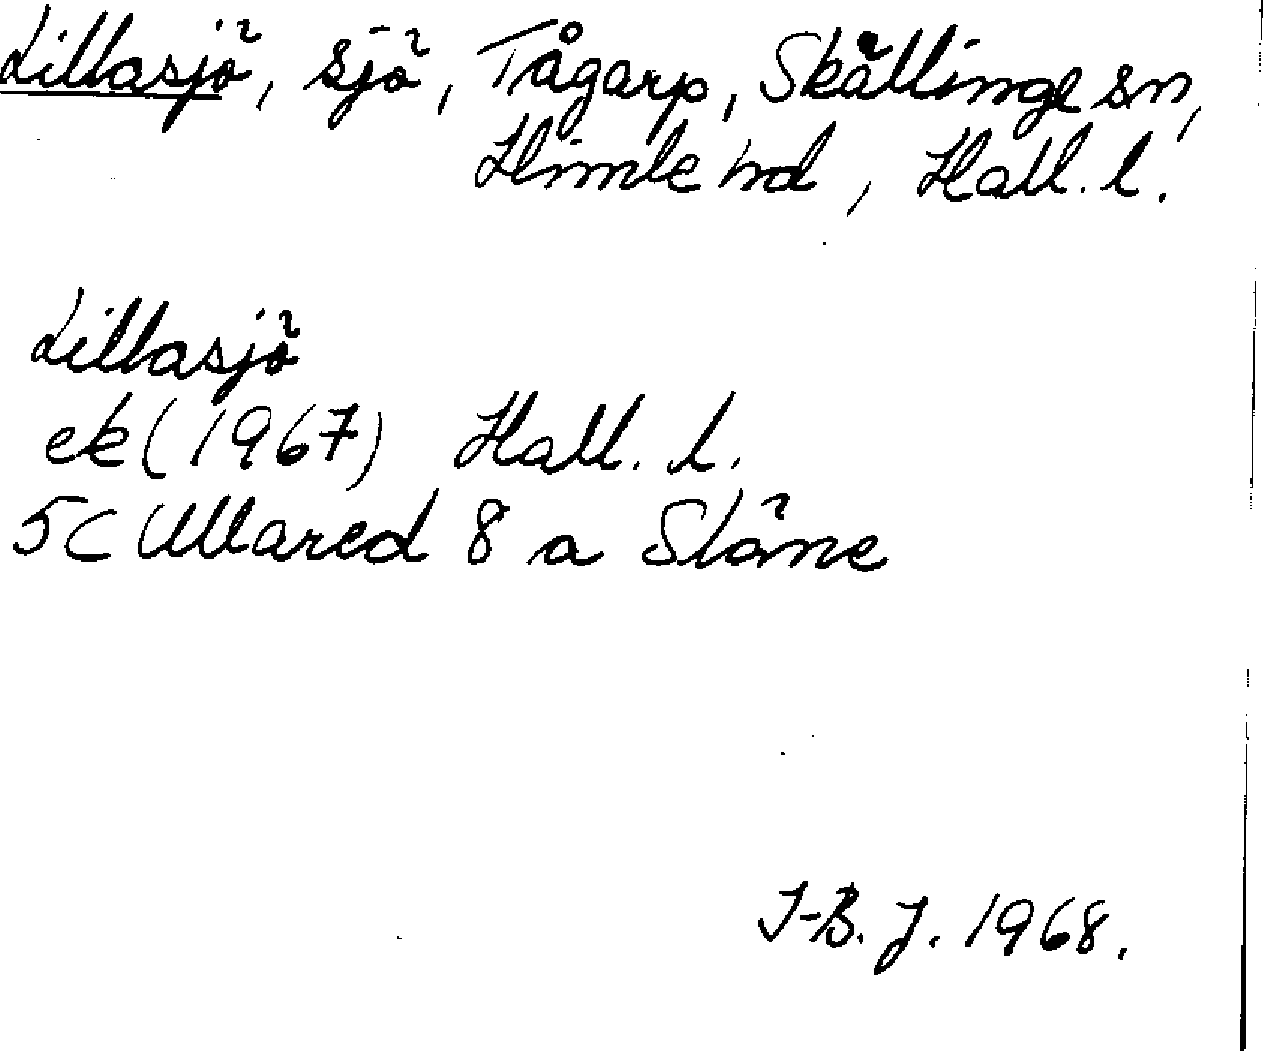 Lillasjö, sjö, Tågarp, Skällinge sn,
Himle hd, Hall. l.
Lillasjö
ek (1967) Hall. l.
5C Ullared 8 a Slöne
J-B. J. 1968.